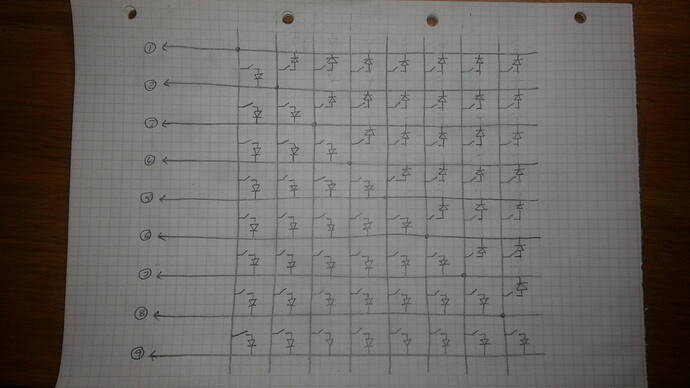 ①
②
③
④
⑤
⑥
⑦
⑧
⑨